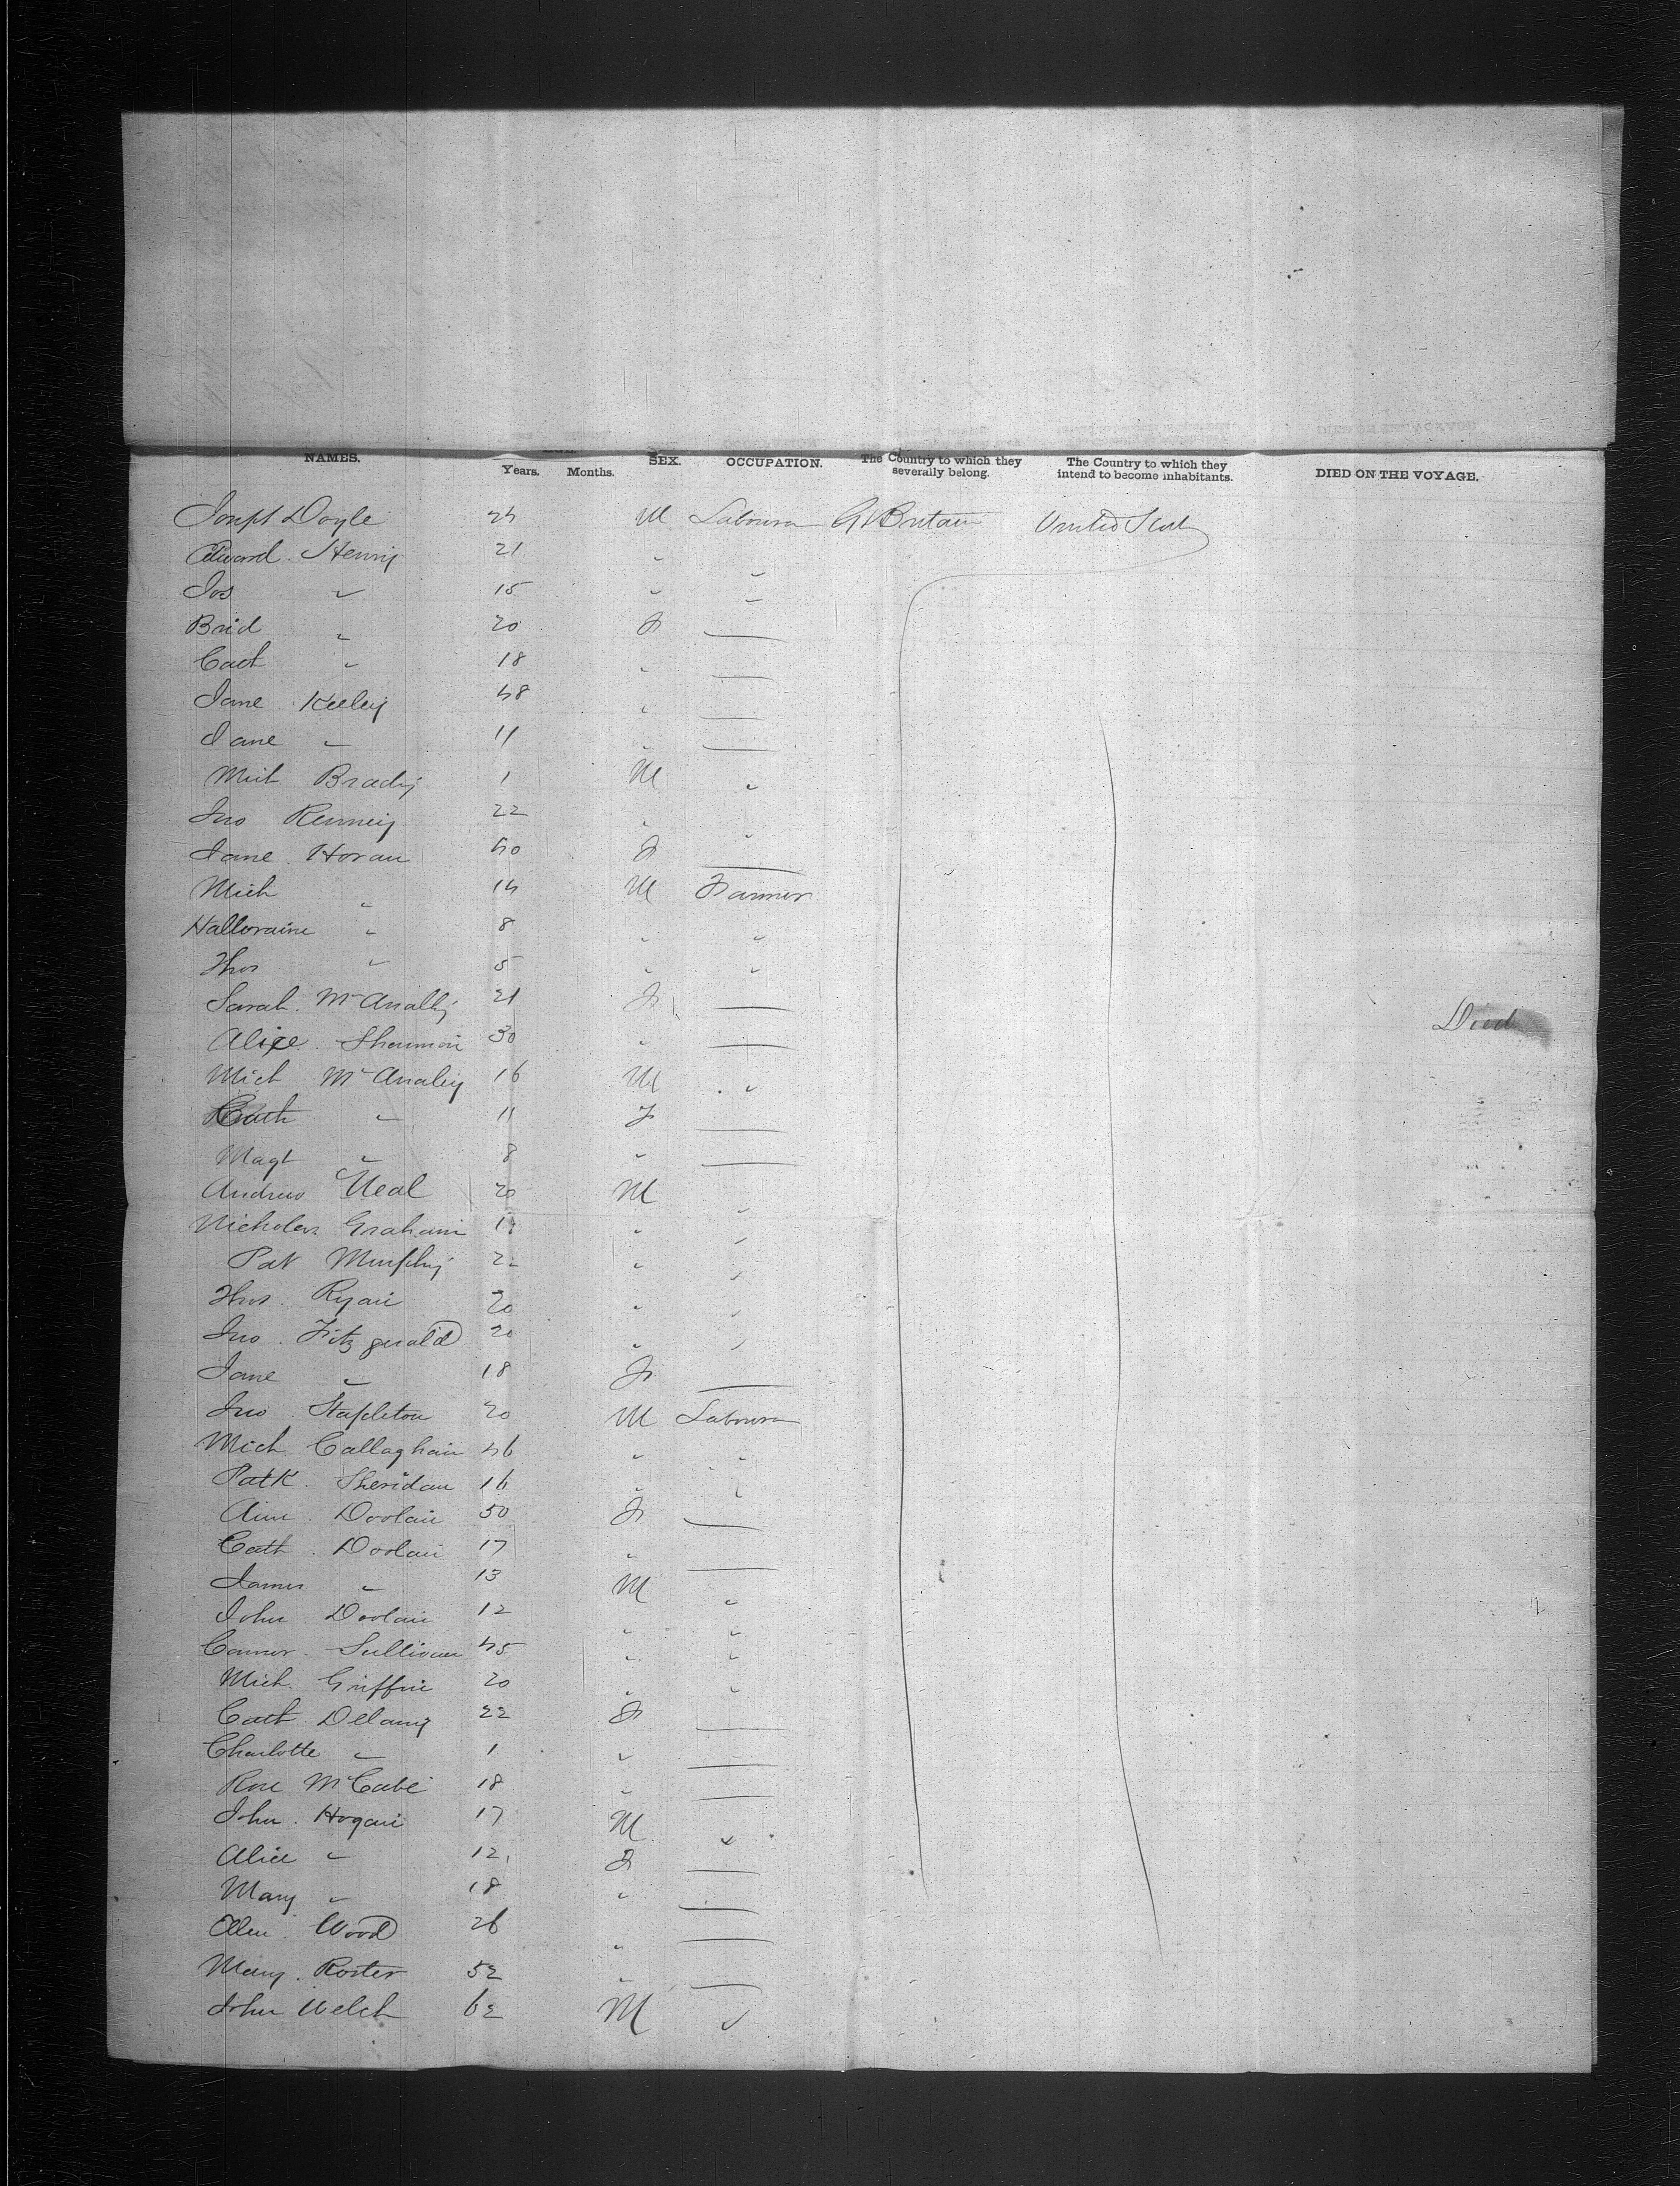 NAMES. Years. Months. SEX. OCCUPATION. The Country to which they severally belong. The Country to which they intend to become inhabitants. DIED ON THE VOYAGE.
Joseph Doyle 24 M Labourer Gt Britain United States
Edward Henry 21 " "
Jos " 15 " "
Brid " 20 F —
Cath " 18 " —
Jane Keeley 48 " —
Jane " 11 " —
Mich Brady 1 M "
Jno Kenney 22 " "
Jane Horan 40 F —
Mich " 14 M Farmer
Halloraine " 8 " "
Thos " 5 " "
Sarah McAnally 21 F —
Alice Shannon 30 " — Died
Mich McAnaley 16 M "
Cath " 11 F —
Magt " 8 " —
Andrew Neal 20 M "
Nicholas Graham " "
Pat Murphy 22 " "
Thos Ryan 20 " "
Jno Fitzgerald 20 " "
Jane " 18 F —
Jno Stapleton 20 M Labourer
Mich Callaghan 46 " "
Patk Sheridan 16 " "
Ann Doolan 50 F —
Cath Doolan 17 " —
James " 13 M "
John Doolan 12 " "
Connor Sullivan 45 " "
Mich Griffin 20 " "
Cath Delany 22 F —
Charlotte " 1 " —
Rose McCabe 18 " —
John Hogan 17 M "
Alice " 12 F —
Mary " 18 " —
Ellen Wood 26 " —
Mary Roster 52 " —
John Welch 62 M "